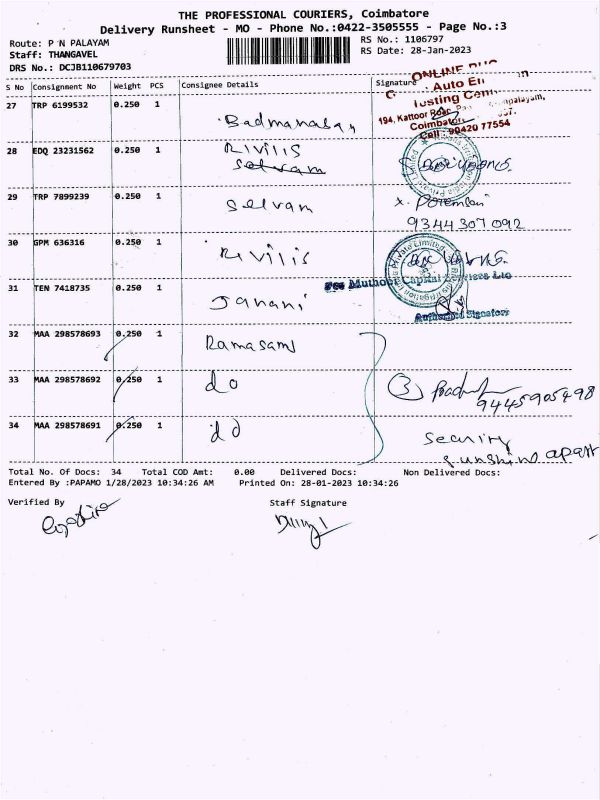 THE PROFESSIONAL COURIERS, Coimbatore
Delivery Runsheet - MO - Phone No.:0422-3505555 - Page No.:3
Route: P N PALAYAM
RS No.: 1106797
Staff: THANGAVEL
RS Date: 28-Jan-2023
DRS No.: DCJB110679703
S No Consignment No Weight PCS Consignee Details Signature
ONLINE
Auto
Testing
194, Kattoor Road,
Coimbatore
Cell: 90420 77554
27 TRP 6199532 0.250 1 Badmanaban
28 EDQ 23231562 0.250 1 Rivilis
selvam
29 TRP 7899239 0.250 1 selvam
9344307092
30 GPM 636316 0.250 1 Rivilis
Private Limited
For Muthoot Capital Services Ltd
31 TEN 7418735 0.250 1 Janani
Authorised Signatory
32 MAA 298578693 0.250 1 Ramasamy
33 MAA 298578692 0.250 1 do
3
9445905498
34 MAA 298578691 0.250 1 do
Security
sunshine apart
Total No. Of Docs: 34 Total COD Amt: 0.00 Delivered Docs: Non Delivered Docs:
Entered By :PAPAMO 1/28/2023 10:34:26 AM Printed On: 28-01-2023 10:34:26
Verified By Staff Signature